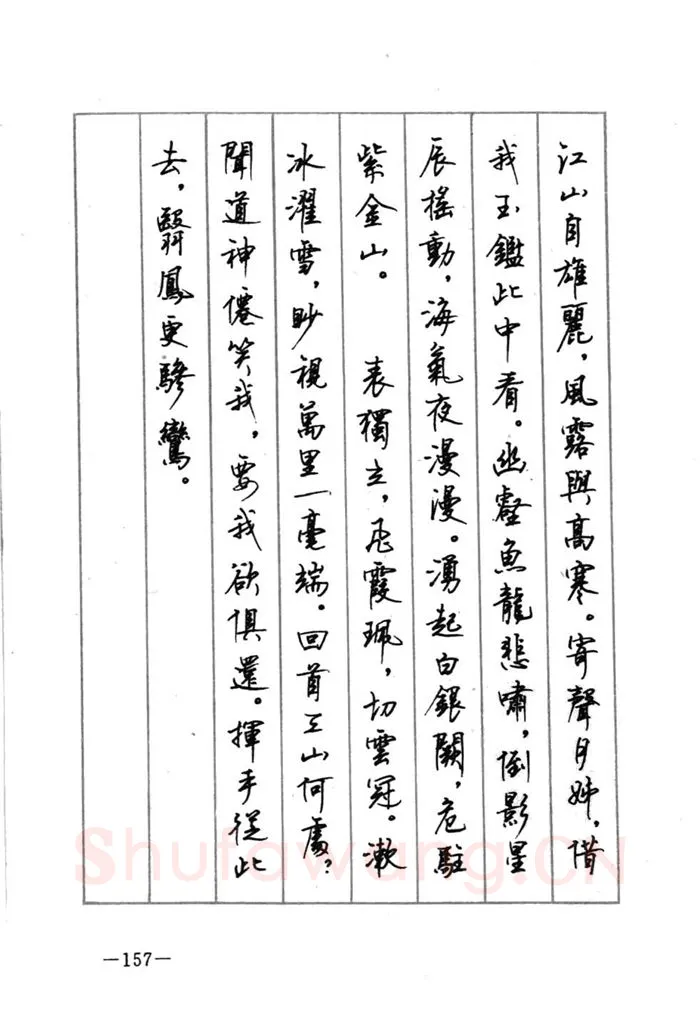 江山自雄麗，風露與高寒。寄聲月姊，借
我玉鑑此中看。幽壑魚龍悲嘯，倒影星
辰搖動，海氣夜漫漫。湧起白銀闕，危駐
紫金山。　表獨立，飛霞珮，切雲冠。漱
冰濯雪，眇視萬里一毫端。回首三山何處？
聞道神僊笑我，要我欲俱還。揮手從此
去，翳鳳更驂鸞。
Shufawang.CN
—157—